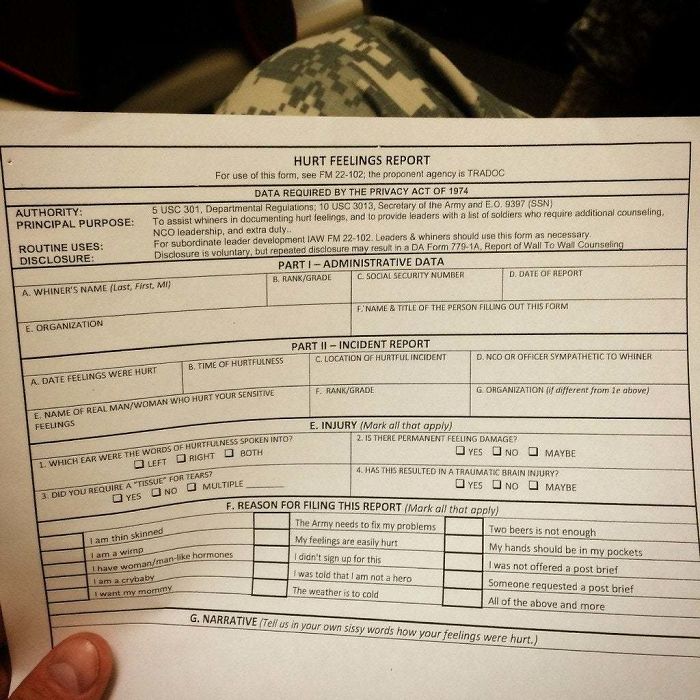 HURT FEELINGS REPORT
For use of this form, see FM 22-102; the proponent agency is TRADOC
DATA REQUIRED BY THE PRIVACY ACT OF 1974
AUTHORITY: 5 USC 301, Departmental Regulations; 10 USC 3013, Secretary of the Army and E.O. 9397 (SSN)
PRINCIPAL PURPOSE: To assist whiners in documenting hurt feelings, and to provide leaders with a list of soldiers who require additional counseling,
NCO leadership, and extra duty..
ROUTINE USES: For subordinate leader development IAW FM 22-102. Leaders & whiners should use this form as necessary.
DISCLOSURE: Disclosure is voluntary, but repeated disclosure may result in a DA Form 779-1A, Report of Wall To Wall Counseling
PART I – ADMINISTRATIVE DATA
A. WHINER'S NAME (Last, First, MI) B. RANK/GRADE C. SOCIAL SECURITY NUMBER D. DATE OF REPORT
E. ORGANIZATION F. NAME & TITLE OF THE PERSON FILLING OUT THIS FORM
PART II – INCIDENT REPORT
A. DATE FEELINGS WERE HURT B. TIME OF HURTFULNESS C. LOCATION OF HURTFUL INCIDENT D. NCO OR OFFICER SYMPATHETIC TO WHINER
E. NAME OF REAL MAN/WOMAN WHO HURT YOUR SENSITIVE
FEELINGS
F. RANK/GRADE G. ORGANIZATION (if different from 1e above)
E. INJURY (Mark all that apply)
1. WHICH EAR WERE THE WORDS OF HURTFULNESS SPOKEN INTO?
☐ LEFT ☐ RIGHT ☐ BOTH
2. IS THERE PERMANENT FEELING DAMAGE?
☐ YES ☐ NO ☐ MAYBE
3. DID YOU REQUIRE A "TISSUE" FOR TEARS?
☐ YES ☐ NO ☐ MULTIPLE ________
4. HAS THIS RESULTED IN A TRAUMATIC BRAIN INJURY?
☐ YES ☐ NO ☐ MAYBE
F. REASON FOR FILING THIS REPORT (Mark all that apply)
I am thin skinned The Army needs to fix my problems Two beers is not enough
I am a wimp My feelings are easily hurt My hands should be in my pockets
I have woman/man-like hormones I didn't sign up for this I was not offered a post brief
I am a crybaby I was told that I am not a hero Someone requested a post brief
I want my mommy The weather is to cold All of the above and more
G. NARRATIVE (Tell us in your own sissy words how your feelings were hurt.)